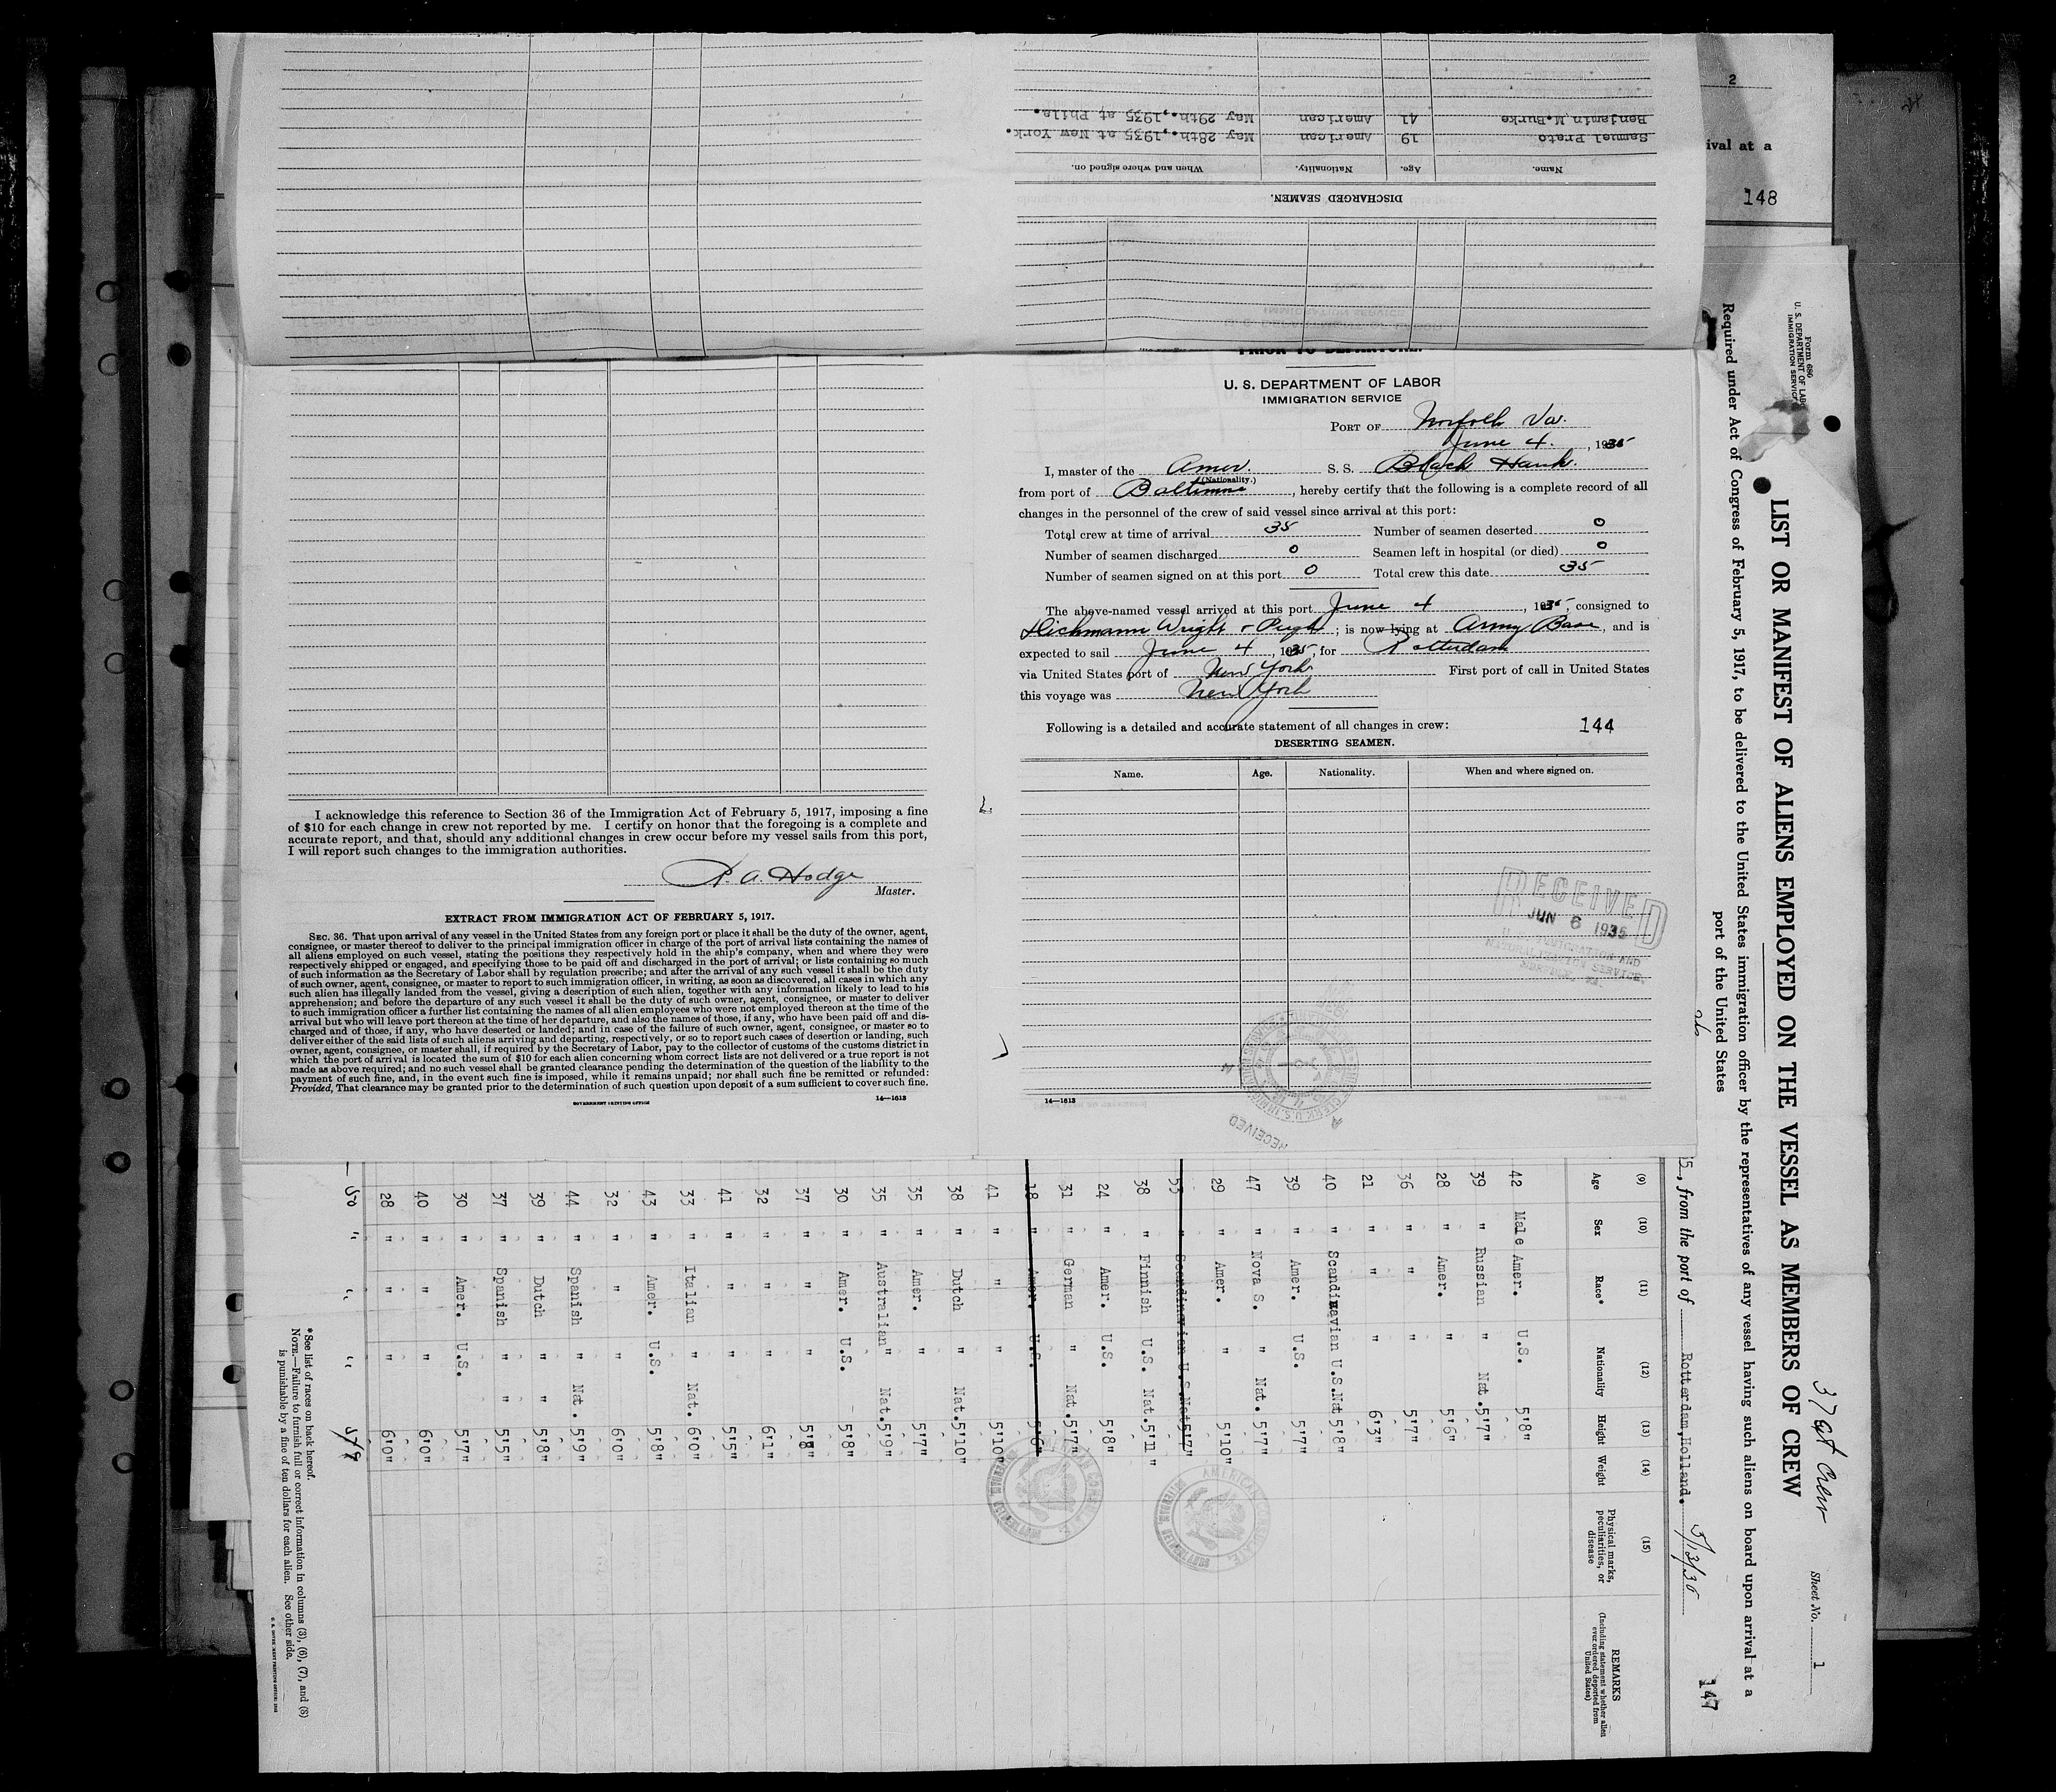 2
ival at a
148
DISCHARGED SEAMEN.
Name. Age. Nationality. When and where signed on.
Samuel Prato 19 American May 28th.,1935 at New York.
Benjamin M.Burke 41 American May 29th.,1935 at Phila.
PRIOR TO DEPARTURE.
U. S. DEPARTMENT OF LABOR
IMMIGRATION SERVICE
PORT OF Norfolk Va.
June 4. , 1935
I, master of the Amer. S. S. Black Hawk.
(Nationality.)
from port of Baltimore , hereby certify that the following is a complete record of all
changes in the personnel of the crew of said vessel since arrival at this port:
Total crew at time of arrival 35 Number of seamen deserted 0
Number of seamen discharged 0 Seamen left in hospital (or died) 0
Number of seamen signed on at this port 0 Total crew this date 35
The above-named vessel arrived at this port June 4 , 1935, consigned to
Wright & Pugh ; is now lying at Army Base, and is
expected to sail June 4 , 1935, for Rotterdam
via United States port of New York First port of call in United States
this voyage was New York
Following is a detailed and accurate statement of all changes in crew: 144
DESERTING SEAMEN.
Name. Age. Nationality. When and where signed on.
RECEIVED
JUN 6 1935
14—1613
RECEIVED
I acknowledge this reference to Section 36 of the Immigration Act of February 5, 1917, imposing a fine
of $10 for each change in crew not reported by me. I certify on honor that the foregoing is a complete and
accurate report, and that, should any additional changes in crew occur before my vessel sails from this port,
I will report such changes to the immigration authorities.
A. Hodge
Master.
EXTRACT FROM IMMIGRATION ACT OF FEBRUARY 5, 1917.
SEC. 36. That upon arrival of any vessel in the United States from any foreign port or place it shall be the duty of the owner, agent,
consignee, or master thereof to deliver to the principal immigration officer in charge of the port of arrival lists containing the names of
all aliens employed on such vessel, stating the positions they respectively hold in the ship's company, when and where they were
respectively shipped or engaged, and specifying those to be paid off and discharged in the port of arrival; or lists containing so much
of such information as the Secretary of Labor shall by regulation prescribe; and after the arrival of any such vessel it shall be the duty
of such owner, agent, consignee, or master to report to such immigration officer, in writing, as soon as discovered, all cases in which any
such alien has illegally landed from the vessel, giving a description of such alien, together with any information likely to lead to his
apprehension; and before the departure of any such vessel it shall be the duty of such owner, agent, consignee, or master to deliver
to such immigration officer a further list containing the names of all alien employees who were not employed thereon at the time of the
arrival but who will leave port thereon at the time of her departure, and also the names of those, if any, who have been paid off and dis-
charged and of those, if any, who have deserted or landed; and in case of the failure of such owner, agent, consignee, or master so to
deliver either of the said lists of such aliens arriving and departing, respectively, or so to report such cases of desertion or landing, such
owner, agent, consignee, or master shall, if required by the Secretary of Labor, pay to the collector of customs of the customs district in
which the port of arrival is located the sum of $10 for each alien concerning whom correct lists are not delivered or a true report is not
made as above required; and no such vessel shall be granted clearance pending the determination of the question of the liability to the
payment of such fine, and, in the event such fine is imposed, while it remains unpaid; nor shall such fine be remitted or refunded:
Provided, That clearance may be granted prior to the determination of such question upon deposit of a sum sufficient to cover such fine.
GOVERNMENT PRINTING OFFICE 14—1613
Form 686
U. S. DEPARTMENT OF LABOR
IMMIGRATION SERVICE
37 at crew
Sheet No. 1
LIST OR MANIFEST OF ALIENS EMPLOYED ON THE VESSEL AS MEMBERS OF CREW
Required under Act of Congress of February 5, 1917, to be delivered to the United States immigration officer by the representatives of any vessel having such aliens on board upon arrival at a
port of the United States
147
5, from the port of Rotterdam, Holland.
(9) (10) (11) (12) (13) (14) (15)
Age Sex Race* Nationality Height Weight Physical marks, peculiarities, or disease REMARKS (Including statement whether alien ever ordered deported from United States)
42 Male Amer. U.S. 5'8"
39 " Russian " Nat. 5'7"
28 " Amer. " 5'6"
36 " " " 5'7"
21 " " " 6'3"
40 " Scandinavian U.S.Nat 5'8"
39 " Amer. U.S. 5'7"
47 " Nova S. " Nat. 5'7"
29 " Amer. " 5'10"
53 " Scandinavian U.S.Nat 5'7"
38 " Finnish U.S. Nat. 5'11"
24 " Amer. U.S. 5'8"
31 " German " Nat. 5'7"
18 " Amer. U.S. 5'6"
41 " " " 5'10"
38 " Dutch " Nat. 5'10"
35 " Amer. " 5'7"
35 " Australian " Nat. 5'9"
30 " Amer. U.S. 5'8"
37 " " " 5'8"
32 " " " 6'1"
41 " " " 5'5"
33 " Italian " Nat. 6'0"
43 " Amer. U.S. 5'8"
32 " " " 6'0"
44 " Spanish " Nat. 5'9"
39 " Dutch " " 5'8"
37 " Spanish " " 5'5"
30 " Amer. U.S. 5'7"
40 " " " 6'0"
28 " " " 6'0"
50 " " " 5'9
*See list of races on back hereof.
NOTE.—Failure to furnish full or correct information in columns (3), (6), (7), and (8)
is punishable by a fine of ten dollars for each alien. See other side.